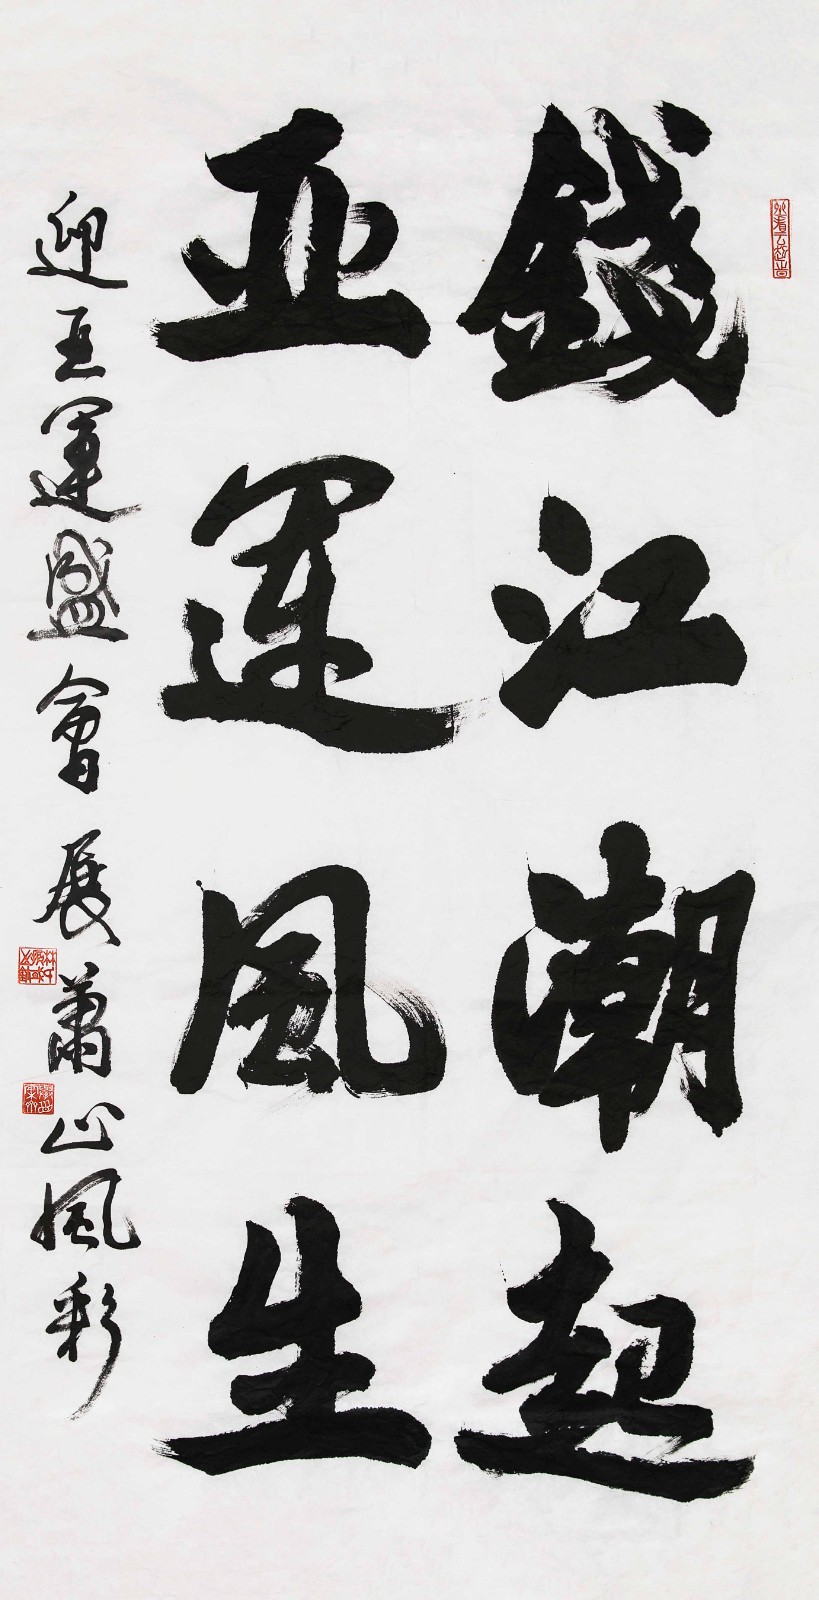 錢江潮起
亞運風生
迎亞運盛會展蕭山風彩